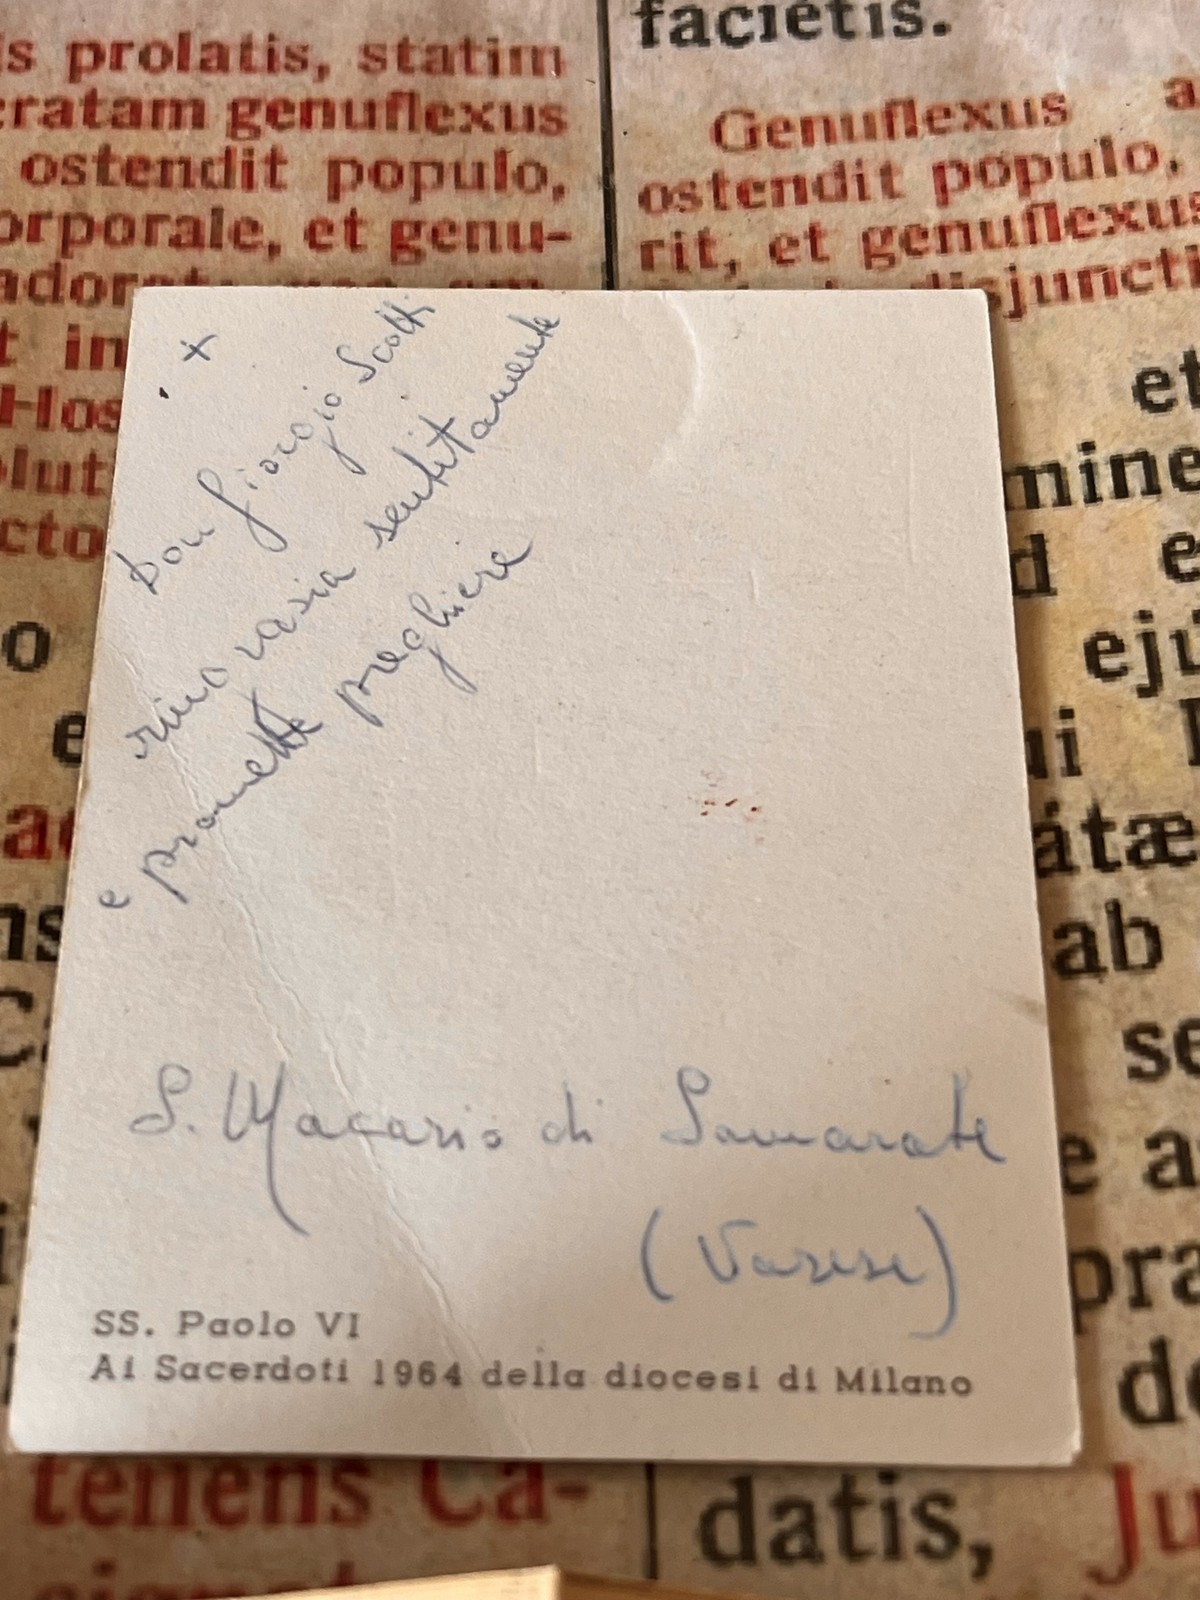 is prolatis, statim
eratam genuflexus
ostendit populo,
orporale, et genu-
t in
Hos
olut
cto
o
e
ns
faciétis.
Genuflexus a
ostendit populo,
rit, et genuflexus
disjuncti
et
mine
d e
eju
ui
átæ
ab
se
e a
pra
de
+
Don Giorgio Scotti
ringrazia sentitamente
e promette preghiere
S. Macario di Samarate
(Varese)
SS. Paolo VI
Ai Sacerdoti 1964 della diocesi di Milano
tenens Ca-
datis, Ju